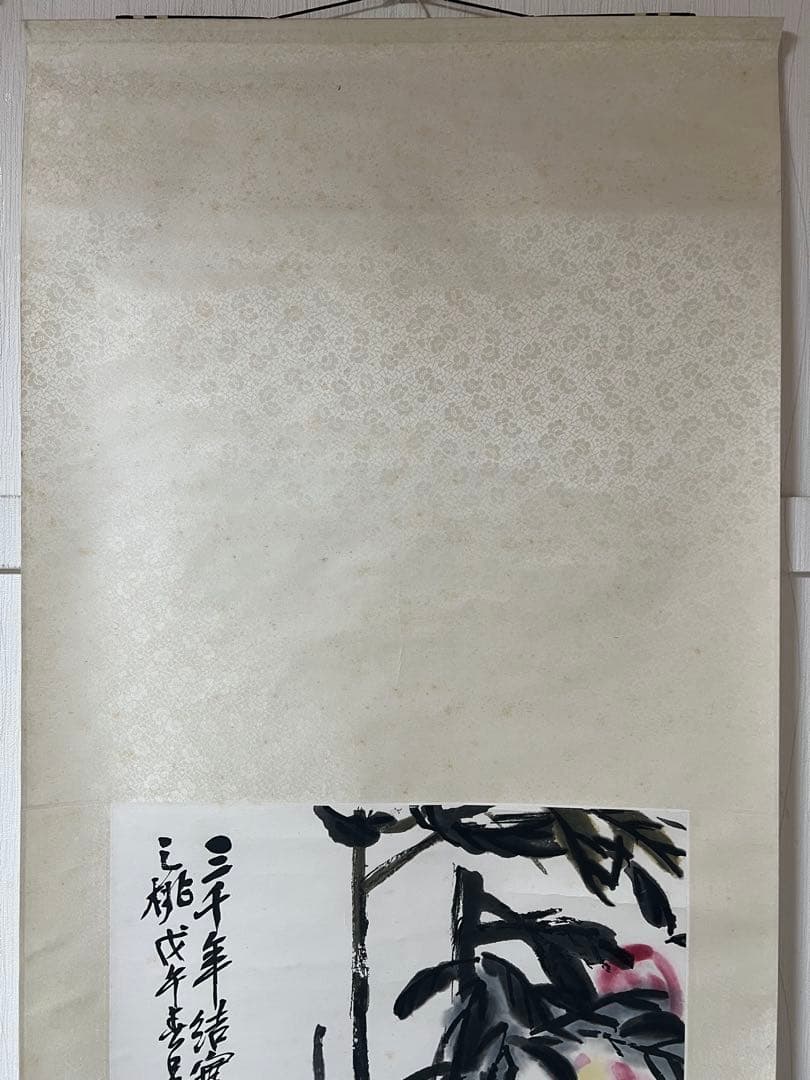 三千年结实
之桃戊午春吴